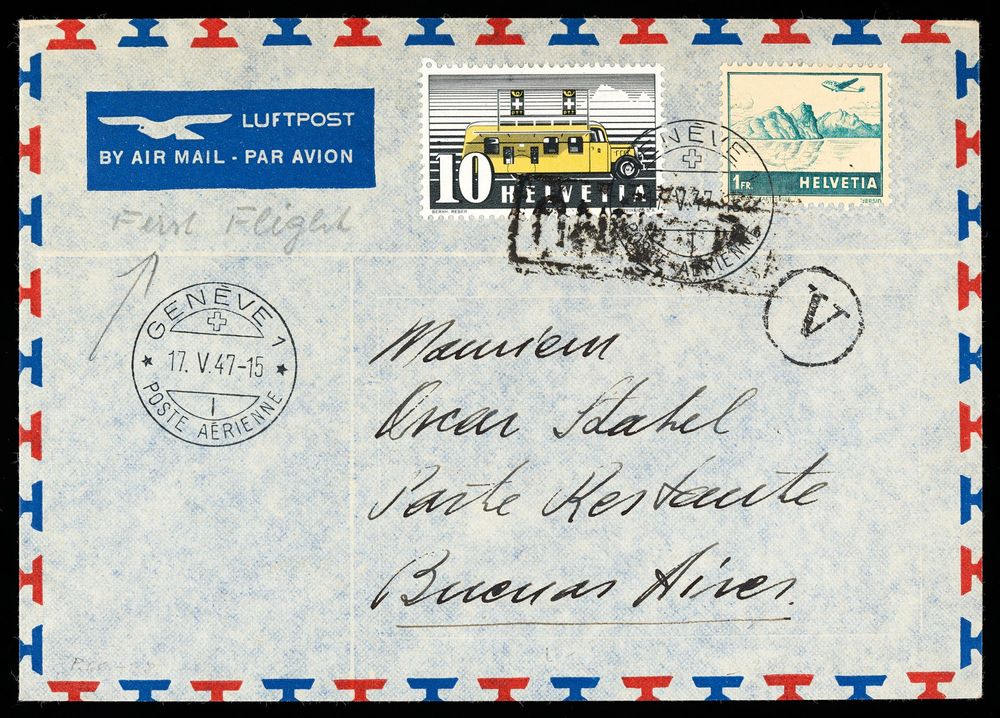 LUFTPOST
BY AIR MAIL - PAR AVION
10 HELVETIA
BERNH. REBER
1 FR. HELVETIA
GENÈVE
POSTE AÉRIENNE
First Flight
V
GENÈVE 1
17. V. 47-15
POSTE AÉRIENNE
Monsieur
Oscar Stahel
Poste Restante
Buenos Aires.